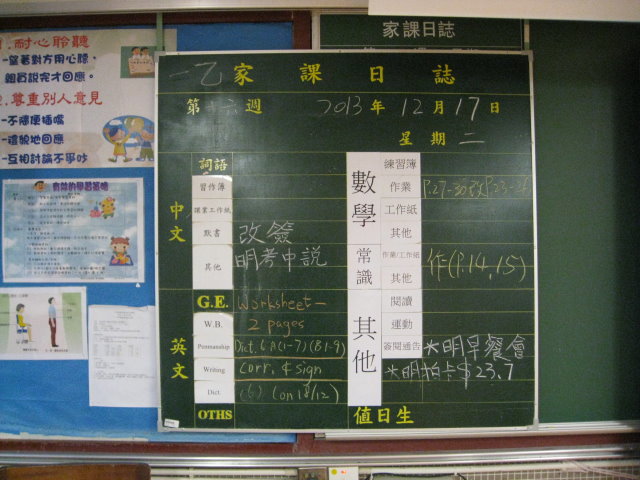 家課日誌
耐心聆聽
望著對方用心聽，
組員說完才回應。
尊重別人意見
不隨便插嘴
-互相討論不爭吵
有效的學習策略
一乙家課日誌
第 六週 2013年12月17日
星期二
中文
詞語
習作簿
課業工作紙
默書 改簽
其他 明考中說
英文
G.E. Worksheet-
W.B. 2 pages
Penmanship Dict. 6 A(1-7)(B1-9)
Writing Corr. & Sign
Dict. (6) (on 18/12)
OTHS
數學
練習簿
作業
工作紙
其他
常識
作業/工作紙 作(P.14,15)
其他
其他
閱讀
運動
簽閱通告 *明早餐會
*明拍卡$23.7
值日生